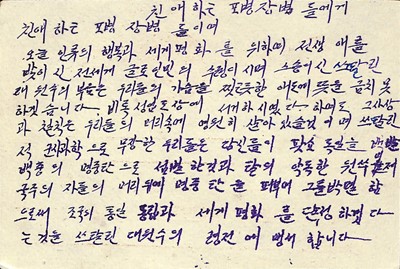 친애하는 포병 장병 들에게
친애 하는 포병 장병 들이여
오늘 인류의 행복과 세계 평화 를 위하여 전생애를
받이신 전세계 근로인민의 수령이시며 스승이신 쓰딸린
대원수의 부음은 우리들의 가슴을 찢른듯한 애도에 뜻을 금치 못
하겠습니다 비록 선생님께서 서거하시였다 하여도 그 사상
과 실천은 우리들의 머리속에 영원히 살아 있을것이며 쓰딸린
적 과학으로 무장한 우리들은 당신들이
백중의 명중탄으로 섬멸한것과 탐의 악독한 원쑤 미제
국주의 자들의 머리위에 명중탄을 퍼부어 그를 박멸 함
으로써 조국의 통일 독립과 세계평화 를 단정하겠다
는것을 쓰딸린 대원수의 령전에 맹서 합니다